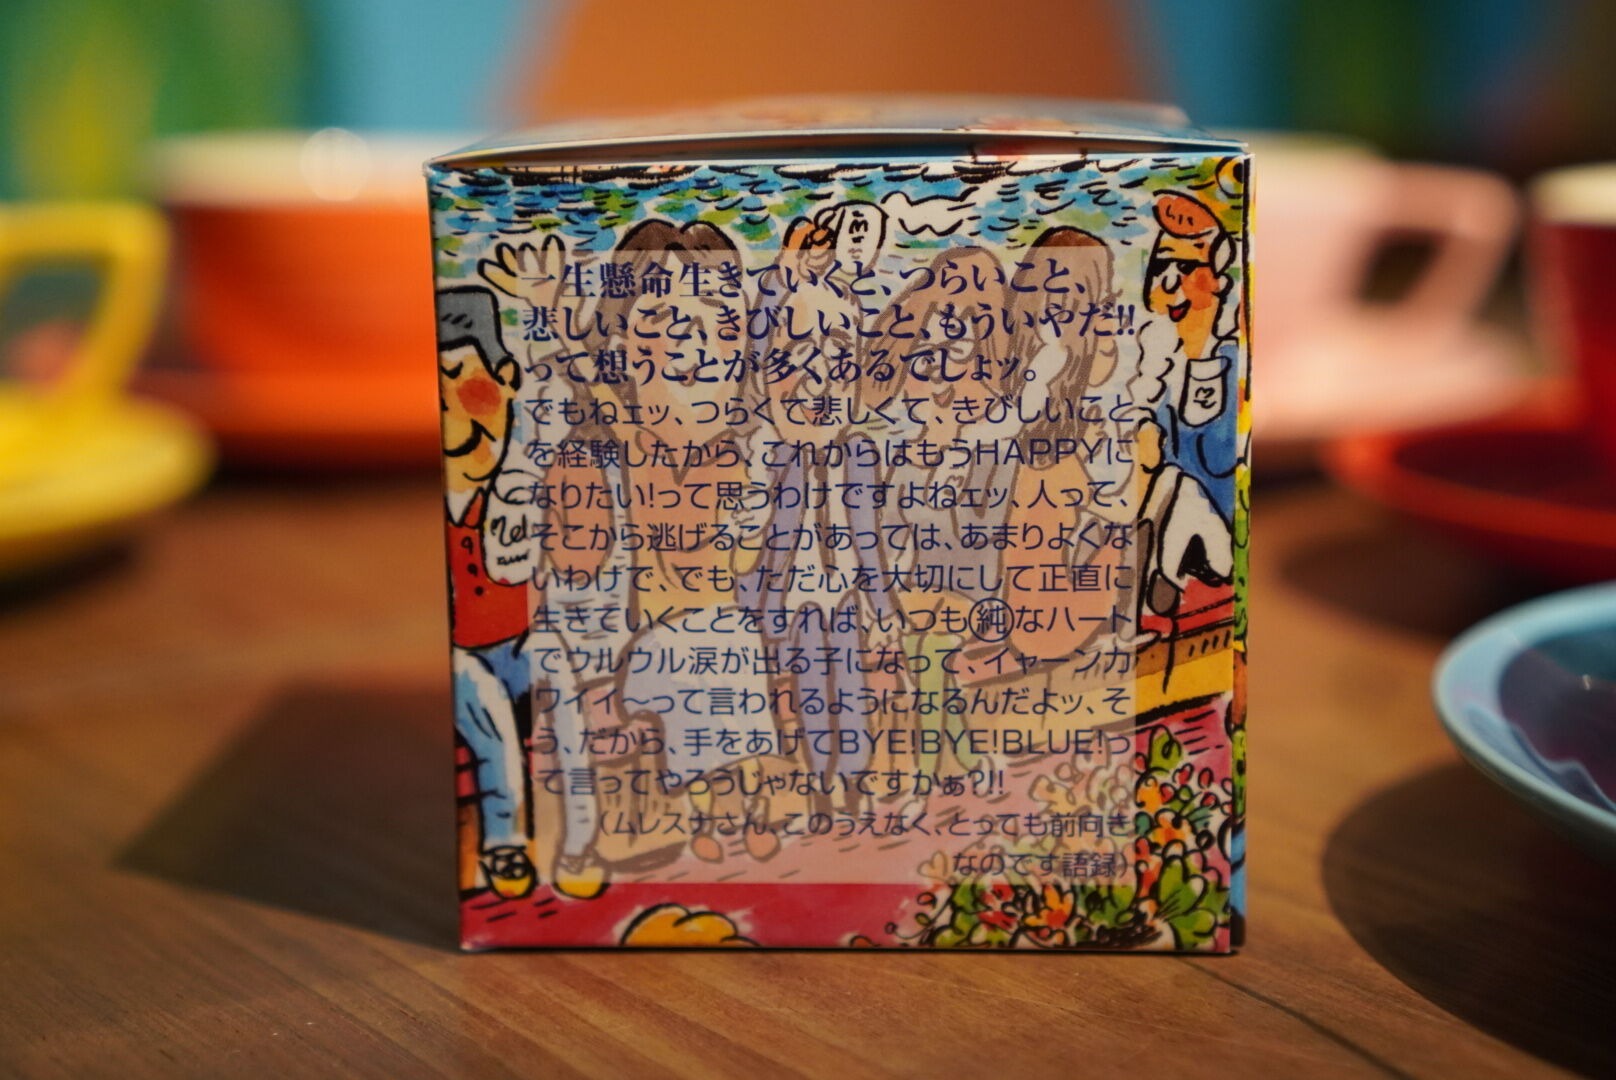 一生懸命生きていくと、つらいこと、
悲しいこと、きびしいこと、もういやだ!!
って想うことが多くあるでしょッ。
でもねェッ、つらくて悲しくて、きびしいこと
を経験したから、これからはもうHAPPYに
なりたい!って思うわけですよねェッ、人って、
そこから逃げることがあっては、あまりよくな
いわけで、でも、ただ心を大切にして正直に
生きていくことをすれば、いつも純なハート
でウルウル涙が出る子になって、イャーンカ
ワイイ〜って言われるようになるんだよッ、そ
う、だから、手をあげてBYE!BYE!BLUE!っ
て言ってやろうじゃないですかぁ?!!
(ムレスナさん、このうえなく、とっても前向き
なのです語録)